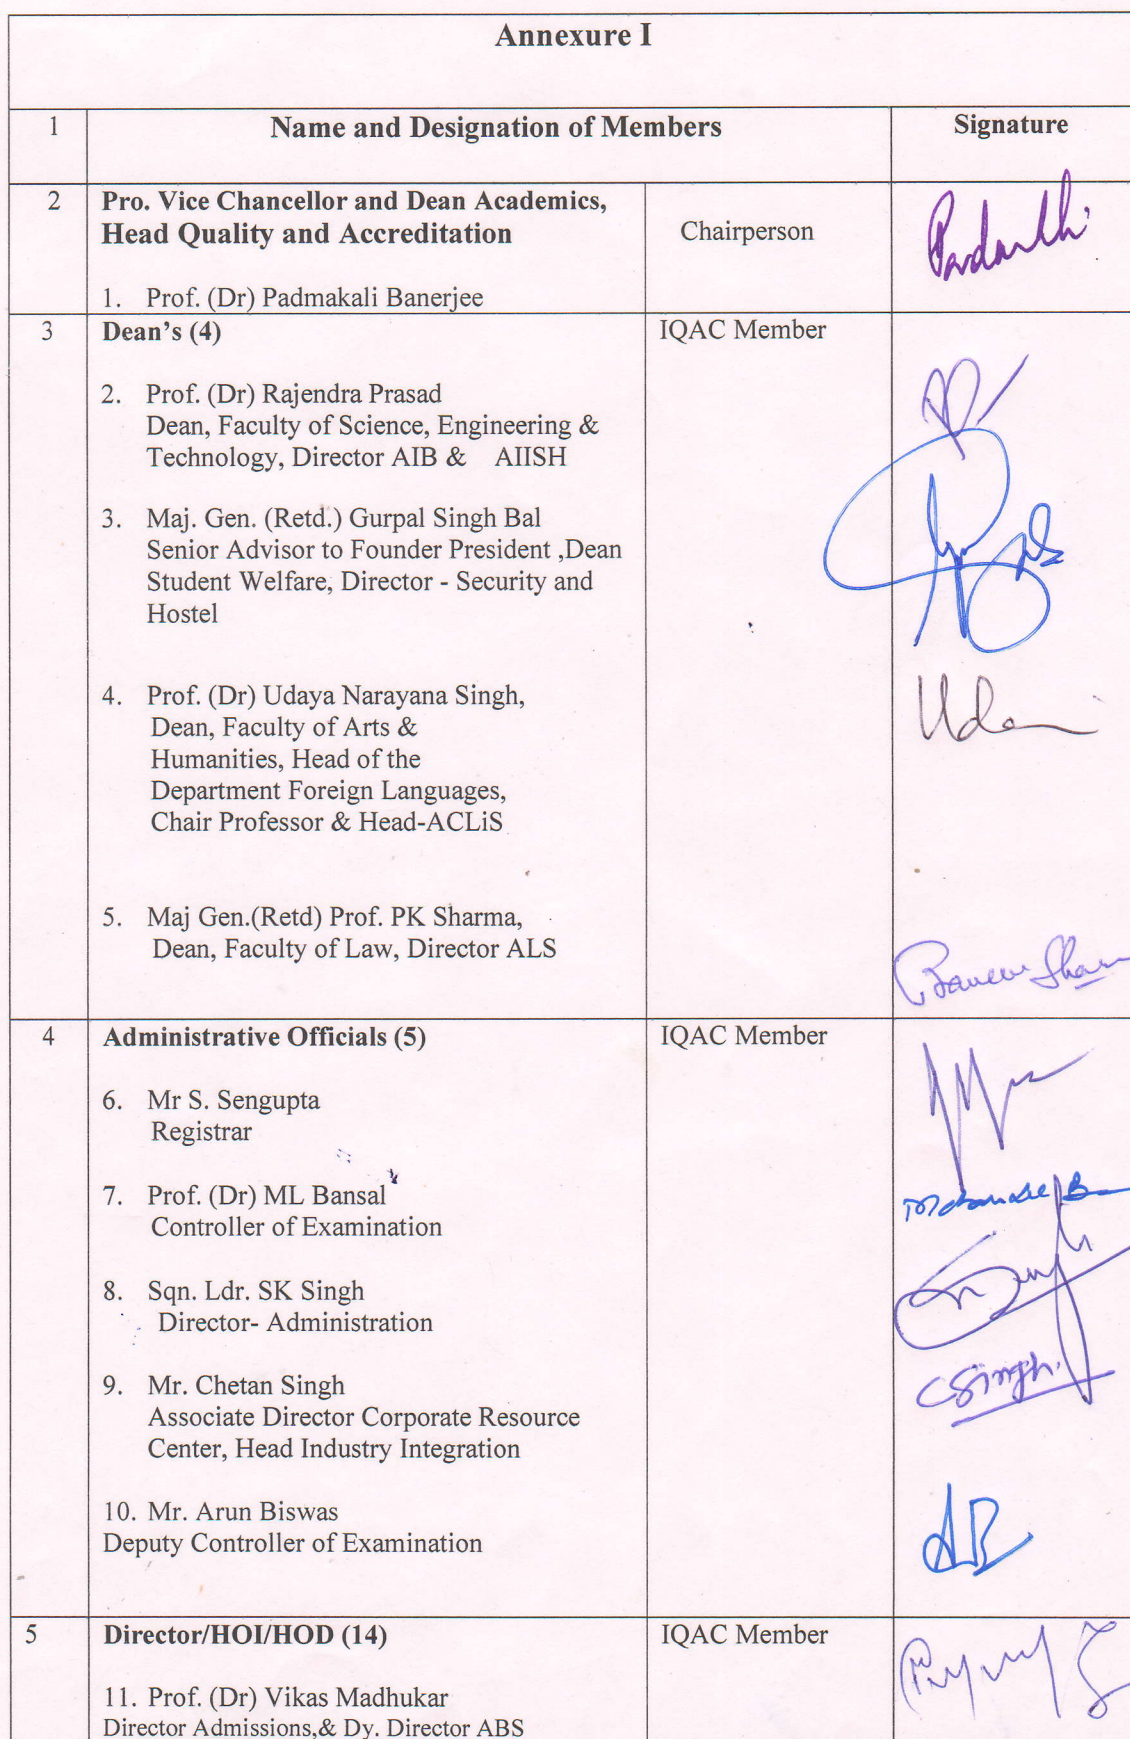 Annexure I
1 Name and Designation of Members Signature
2 Pro. Vice Chancellor and Dean Academics,
Head Quality and Accreditation Chairperson
1. Prof. (Dr) Padmakali Banerjee
3 Dean's (4) IQAC Member
2. Prof. (Dr) Rajendra Prasad
Dean, Faculty of Science, Engineering &
Technology, Director AIB & AIISH
3. Maj. Gen. (Retd.) Gurpal Singh Bal
Senior Advisor to Founder President ,Dean
Student Welfare, Director - Security and
Hostel
4. Prof. (Dr) Udaya Narayana Singh,
Dean, Faculty of Arts &
Humanities, Head of the
Department Foreign Languages,
Chair Professor & Head-ACLiS
5. Maj Gen.(Retd) Prof. PK Sharma,
Dean, Faculty of Law, Director ALS
4 Administrative Officials (5) IQAC Member
6. Mr S. Sengupta
Registrar
7. Prof. (Dr) ML Bansal
Controller of Examination
8. Sqn. Ldr. SK Singh
Director- Administration
9. Mr. Chetan Singh
CSingh.
Associate Director Corporate Resource
Center, Head Industry Integration
10. Mr. Arun Biswas
Deputy Controller of Examination
AB
5 Director/HOI/HOD (14) IQAC Member
11. Prof. (Dr) Vikas Madhukar
Director Admissions,& Dy. Director ABS